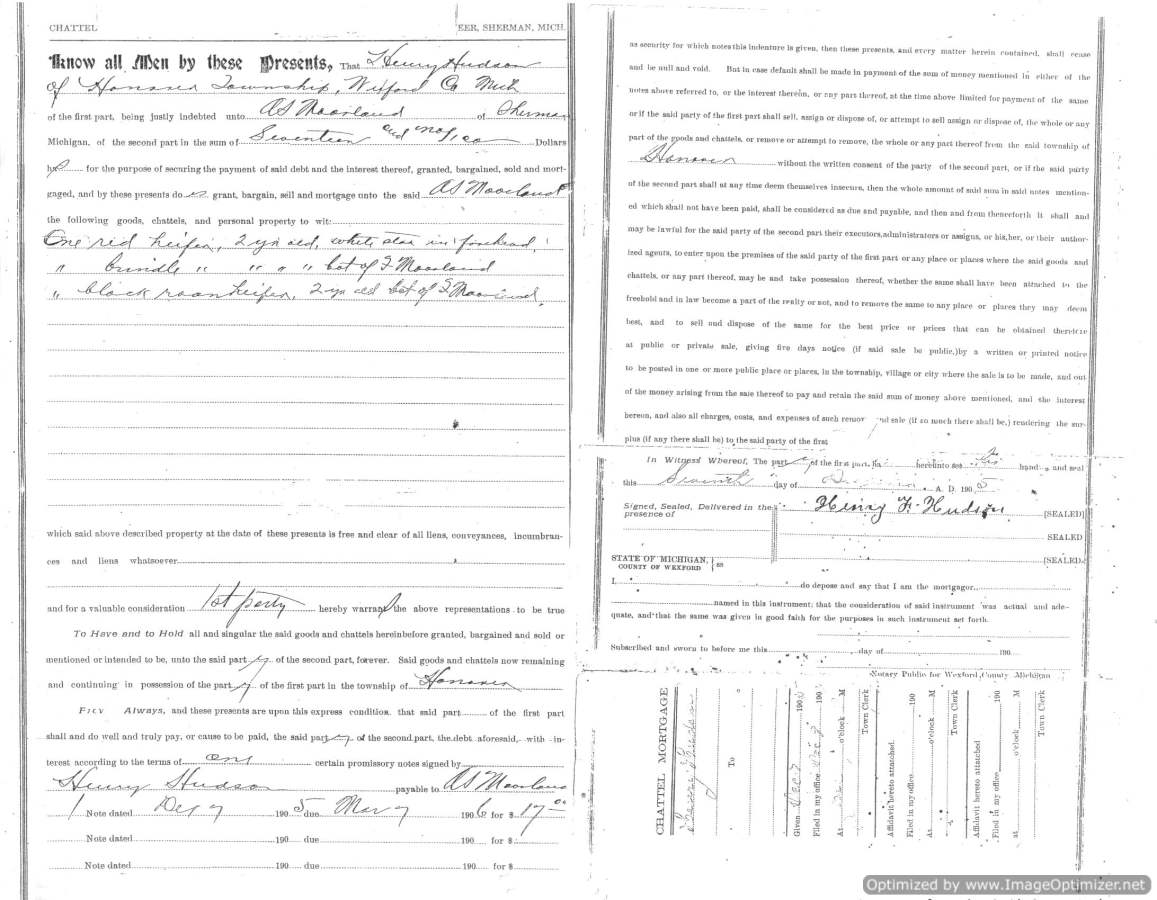 CHATTEL
EER, SHERMAN, MICH.
Know all Men by these Presents, That Henry Hudson
of Hanover Township, Wexford Co Mich
of the first part, being justly indebted unto AS Moorland of Sherman
Michigan, of the second part in the sum of Seventeen and no/100 Dollars
for the purpose of securing the payment of said debt and the interest thereof, granted, bargained, sold and mort-
gaged, and by these presents do es grant, bargain, sell and mortgage unto the said AS Moorland
the following goods, chattels, and personal property to wit:
One red heifer, 2 yr old, white star in forehead,
" brindle " " " " bot of F Moorland
" black roan heifer, 2 yr old bot of F Moorland,
which said above described property at the date of these presents is free and clear of all liens, conveyances, incumbran-
ces and liens whatsoever
and for a valuable consideration 1st party hereby warrant the above representations to be true
To Have and to Hold all and singular the said goods and chattels hereinbefore granted, bargained and sold or
mentioned or intended to be, unto the said part y of the second part, forever. Said goods and chattels now remaining
and continuing in possession of the part y of the first part in the township of Hanover
Always, and these presents are upon this express condition, that said part of the first part
shall and do well and truly pay, or cause to be paid, the said part y of the second part, the debt aforesaid, with in-
terest according to the terms of one certain promissory notes signed by
Henry Hudson payable to AS Moorland
1 Note dated Dec 7 190 5 due Mar 7 190 6 for $ 17 00
Note dated 190 due 190 for $
Note dated 190 due 190 for $
as security for which notes this indenture is given, then these presents, and every matter herein contained, shall cease
and be null and void. But in case default shall be made in payment of the sum of money mentioned in either of the
notes above referred to, or the interest therein, or any part thereof, at the time above limited for payment of the same
or if the said party of the first part shall sell, assign or dispose of, or attempt to sell assign or dispose of, the whole or any
part of the goods and chattels, or remove or attempt to remove, the whole or any part thereof from the said township of
Hanover without the written consent of the party of the second part, or if the said party
of the second part shall at any time deem themselves insecure, then the whole amount of said sum in said notes mention-
ed which shall not have been paid, shall be considered as due and payable, and then and from thenceforth it shall and
may be lawful for the said party of the second part their executors,administrators or assigns, or his,her, or their author-
ized agents, to enter upon the premises of the said party of the first part or any place or places where the said goods and
chattels, or any part thereof, may be and take possession thereof, whether the same shall have been attached to the
freehold and in law become a part of the realty or not, and to remove the same to any place or places they may deem
best, and to sell and dispose of the same for the best price or prices that can be obtained therefore
at public or private sale, giving five days notice (if said sale be public,)by a written or printed notice
to be posted in one or more public place or places, in the township, village or city where the sale is to be made, and out
of the money arising from the sale thereof to pay and retain the said sum of money above mentioned, and the interest
hereon, and also all charges, costs, and expenses of such remov and sale (if so much there shall be,) rendering the sur-
plus (if any there shall be) to the said party of the first
In Witness Whereof, The part y of the first part, ha hereunto set his hand and seal
this Seventh day of A. D. 190 5
Signed, Sealed, Delivered in the
presence of
Henry F. Hudson [SEALED]
SEALED
[SEALED]
STATE OF MICHIGAN,
COUNTY OF WEXFORD } ss
I, do depose and say that I am the mortgagor
named in this instrument; that the consideration of said instrument was actual and ade-
quate, and that the same was given in good faith for the purposes in such instrument set forth.
Subscribed and sworn to before me this day of 190
Notary Public for Wexford, County Michigan
CHATTEL MORTGAGE
Henry Hudson
To
Given Dec 7 190 5
Filed in my office Dec 190
At o'clock M
Town Clerk
Affidavit hereto attached.
Filed in my office. 190
At o'clock M
Town Clerk
Affidavit hereto attached
Filed in my office, 190
at o'clock M
Town Clerk
Optimized by www.ImageOptimizer.net